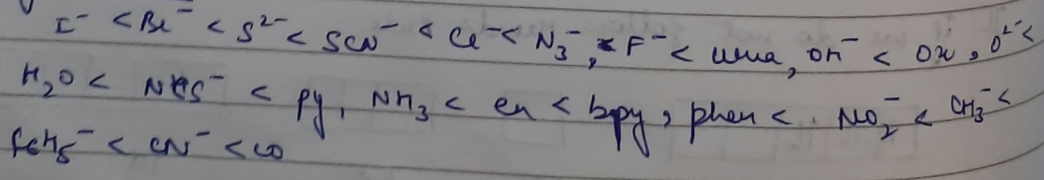 I⁻ < Br⁻ < S²⁻ < SCN⁻ < Cl⁻ < N₃⁻, F⁻ < urea, OH⁻ < Ox, O²⁻ <
H₂O < NCS⁻ < py, NH₃ < en < bpy, phen < NO₂⁻ < CH₃⁻ <
C₆H₅⁻ < CN⁻ < CO